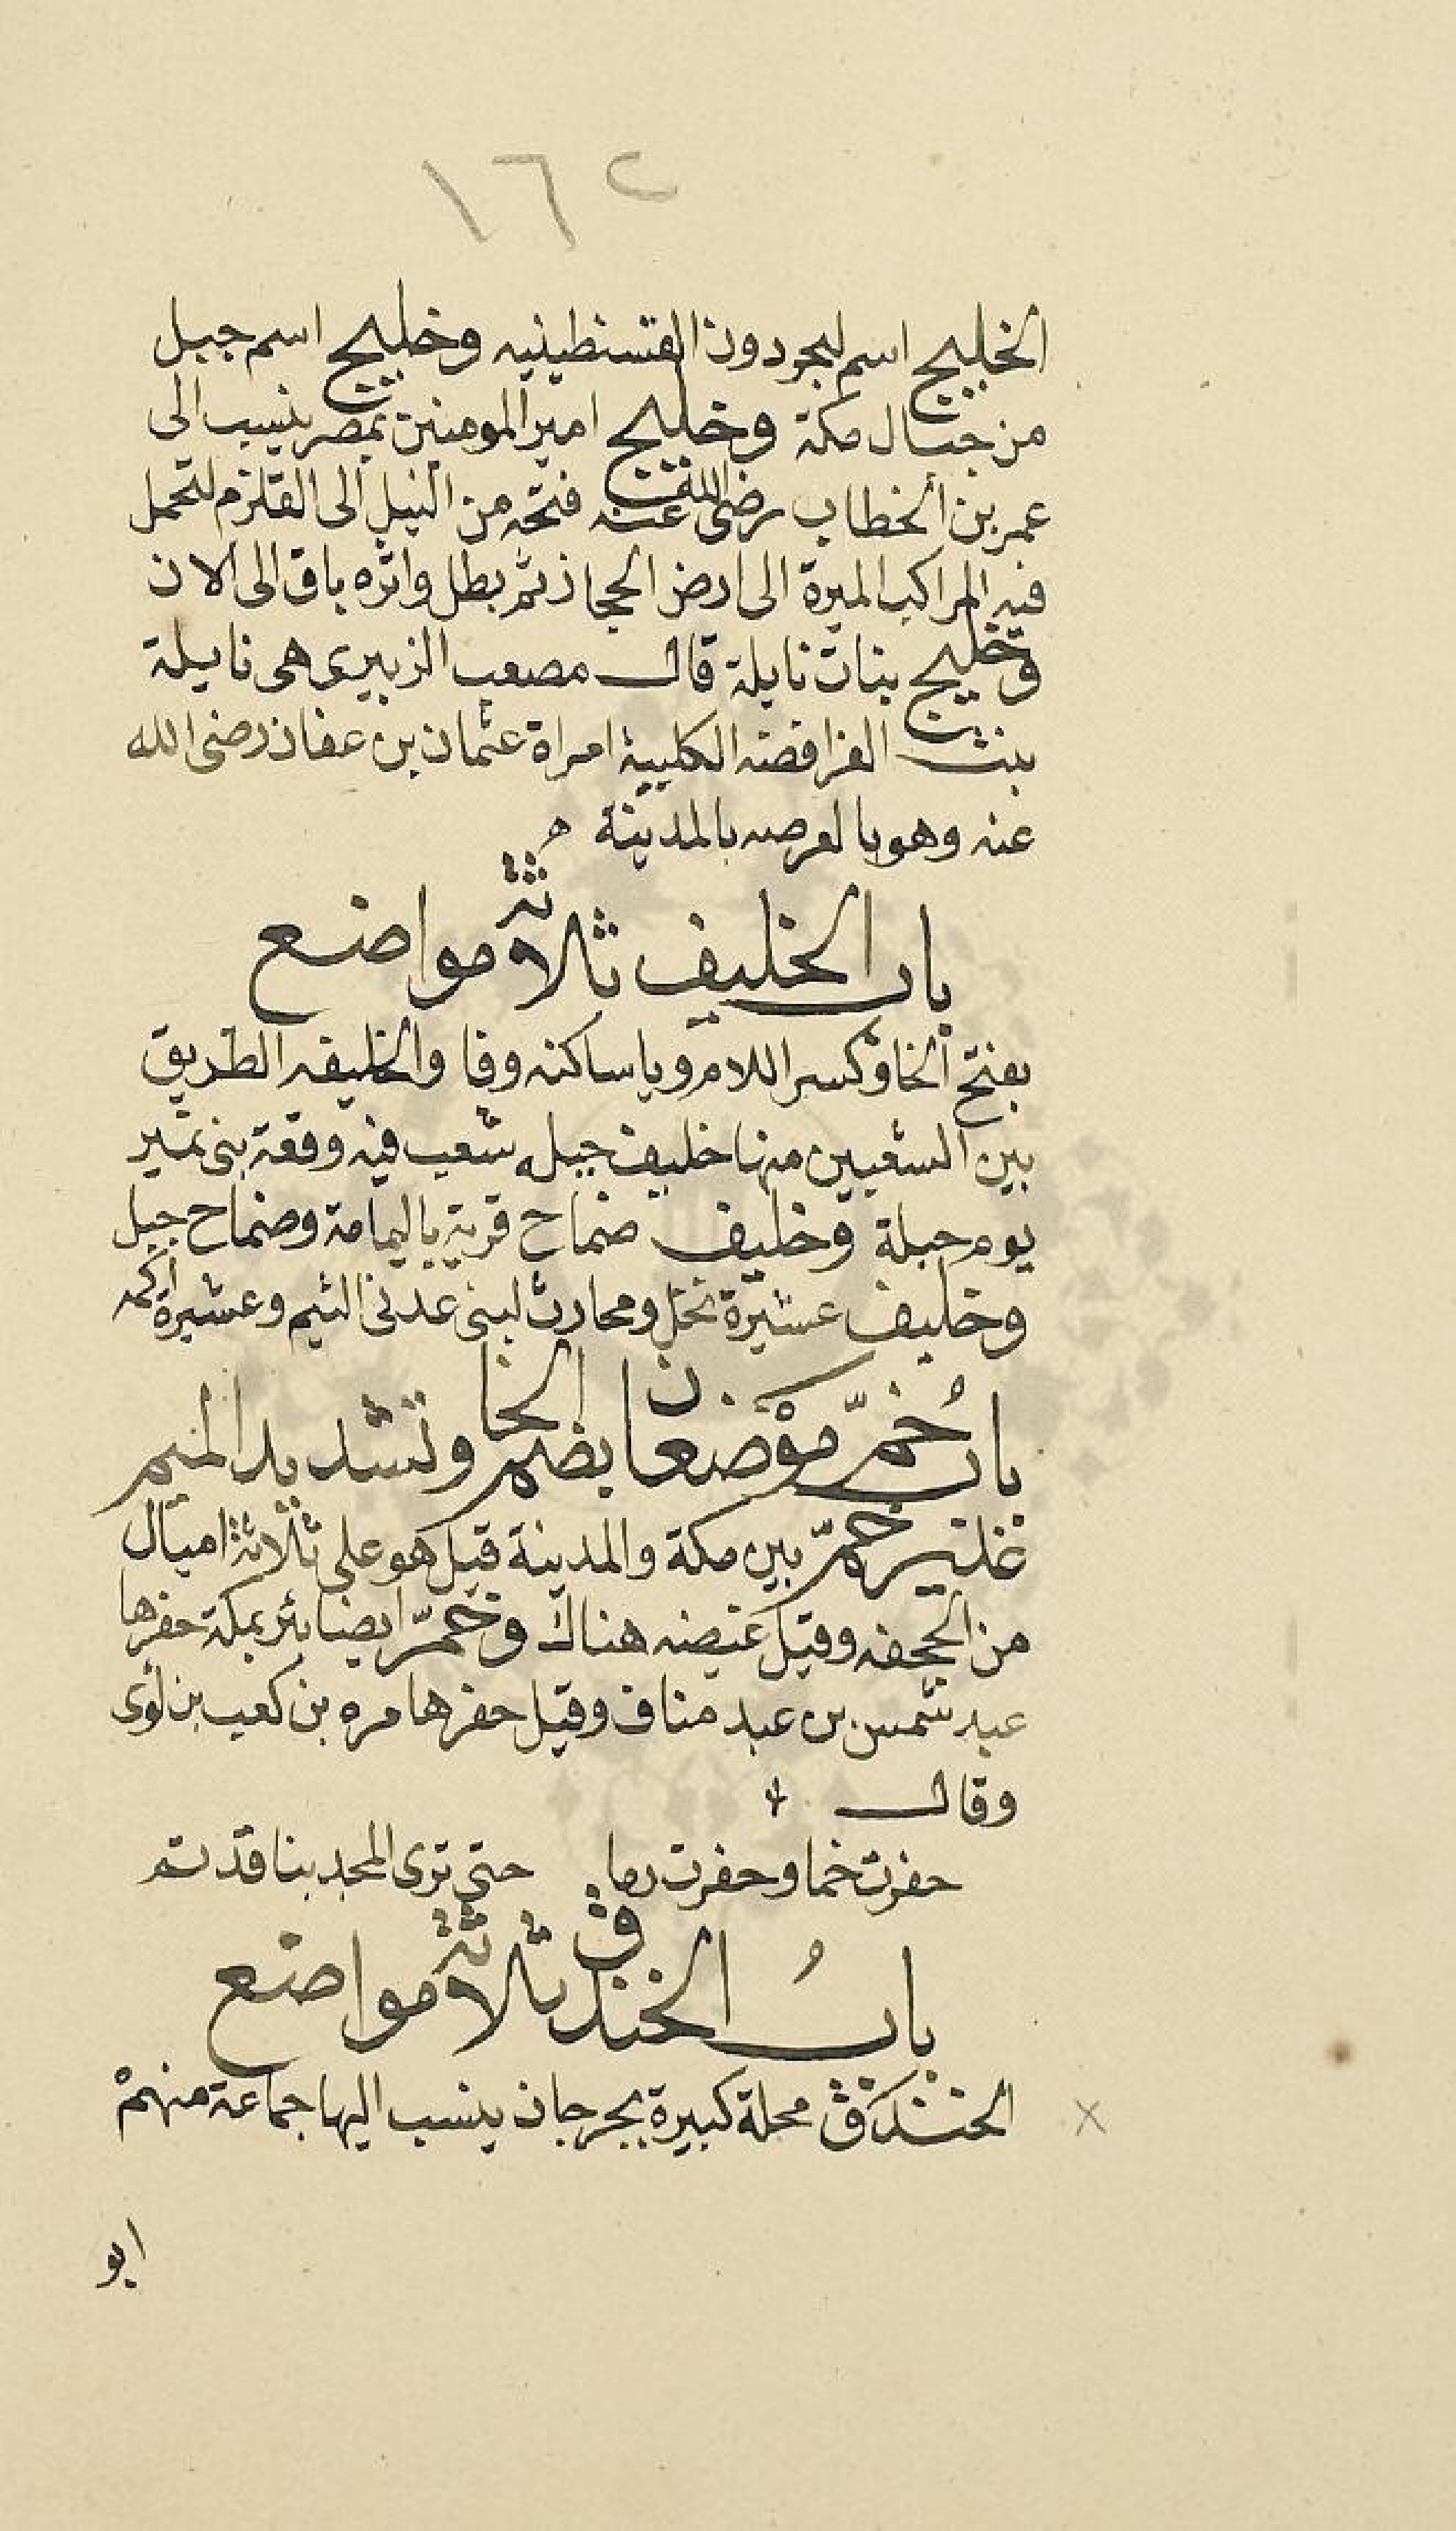 ١٦٢
الخليج اسم لبحر دون القسنطينيه وخليج اسم جبل
من جبال مكة وخليج امير المومنين بمصر ينسب الى
عمر بن الخطاب رضى الله عنه فتحه من النيل الى القلزم لتحمل
فيه المراكب الميرة الى ارض الحجاز ثم بطل واثره باق الى الان
وخليج بنات نايلة قال مصعب الزبيرى هى نايلة
بنت الفرافصه الكلبية امراة عثمان بن عفان رضى الله
عنه وهو بالعرصه بالمدينة ه
باب الخليف ثلاثة مواضع
بفتح الخا وكسر اللام ويا ساكنه وفا والخليفه الطريق
بين الشعبين منها خليف جبله شعب فيه وقعة بنى نمير
يوم جبلة وخليف صماح قرية باليمامة وصماح جبل
وخليف عشيرة نخل ومحارث لبنى عدى التيم وعشيرة اكمه
باب خُمّ موْضعان بضم الخا وتشديد الميم
غدير خمّ بين مكة والمدينة قيل هو على ثلاثة اميال
من الجحفه وقيل غيضه هناك وخمّ ايضا بئر بمكة حفرها
عبد شمس بن عبد مناف وقيل حفرها مره بن كعب بن لوى
وقال
حفرت خما وحفرت رما حتى ترى المجد بنا قد تم
بابُ الخندق ثلاثة مواضع
الخندق محلة كبيرة بجرجان ينسب اليها جماعة منهمْ
ابو